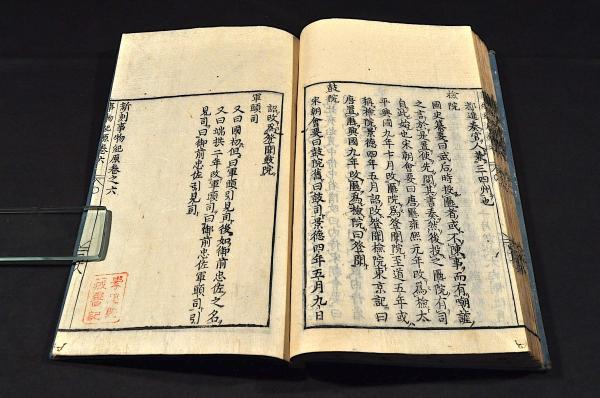 都造秦常人兼三四州也
檢院
國史纂要曰武后時投匭者或不陳事而有嘲謔
之言於是置使先閱其書奏然後投之匭院有司
自此始也宋朝會要曰唐匭雍熙元年改爲檢太
平興國九年十月改匭院爲登聞院至道五年或
稱檢院景德四年五月詔改登聞檢院東京記曰
唐置匭興國九年改匭爲檢院曰登聞
鼓院
宋朝會要曰鼓院舊曰鼓司景德四年五月九日
詔改爲登聞鼓院
軍頭司
又曰國初但曰軍頭引見司後加御前忠佐之名
又曰端拱二年改軍頭司曰御前忠佐軍頭司引
見司曰御前忠佐引見司
新刻事物紀原卷之六
事物紀原卷六